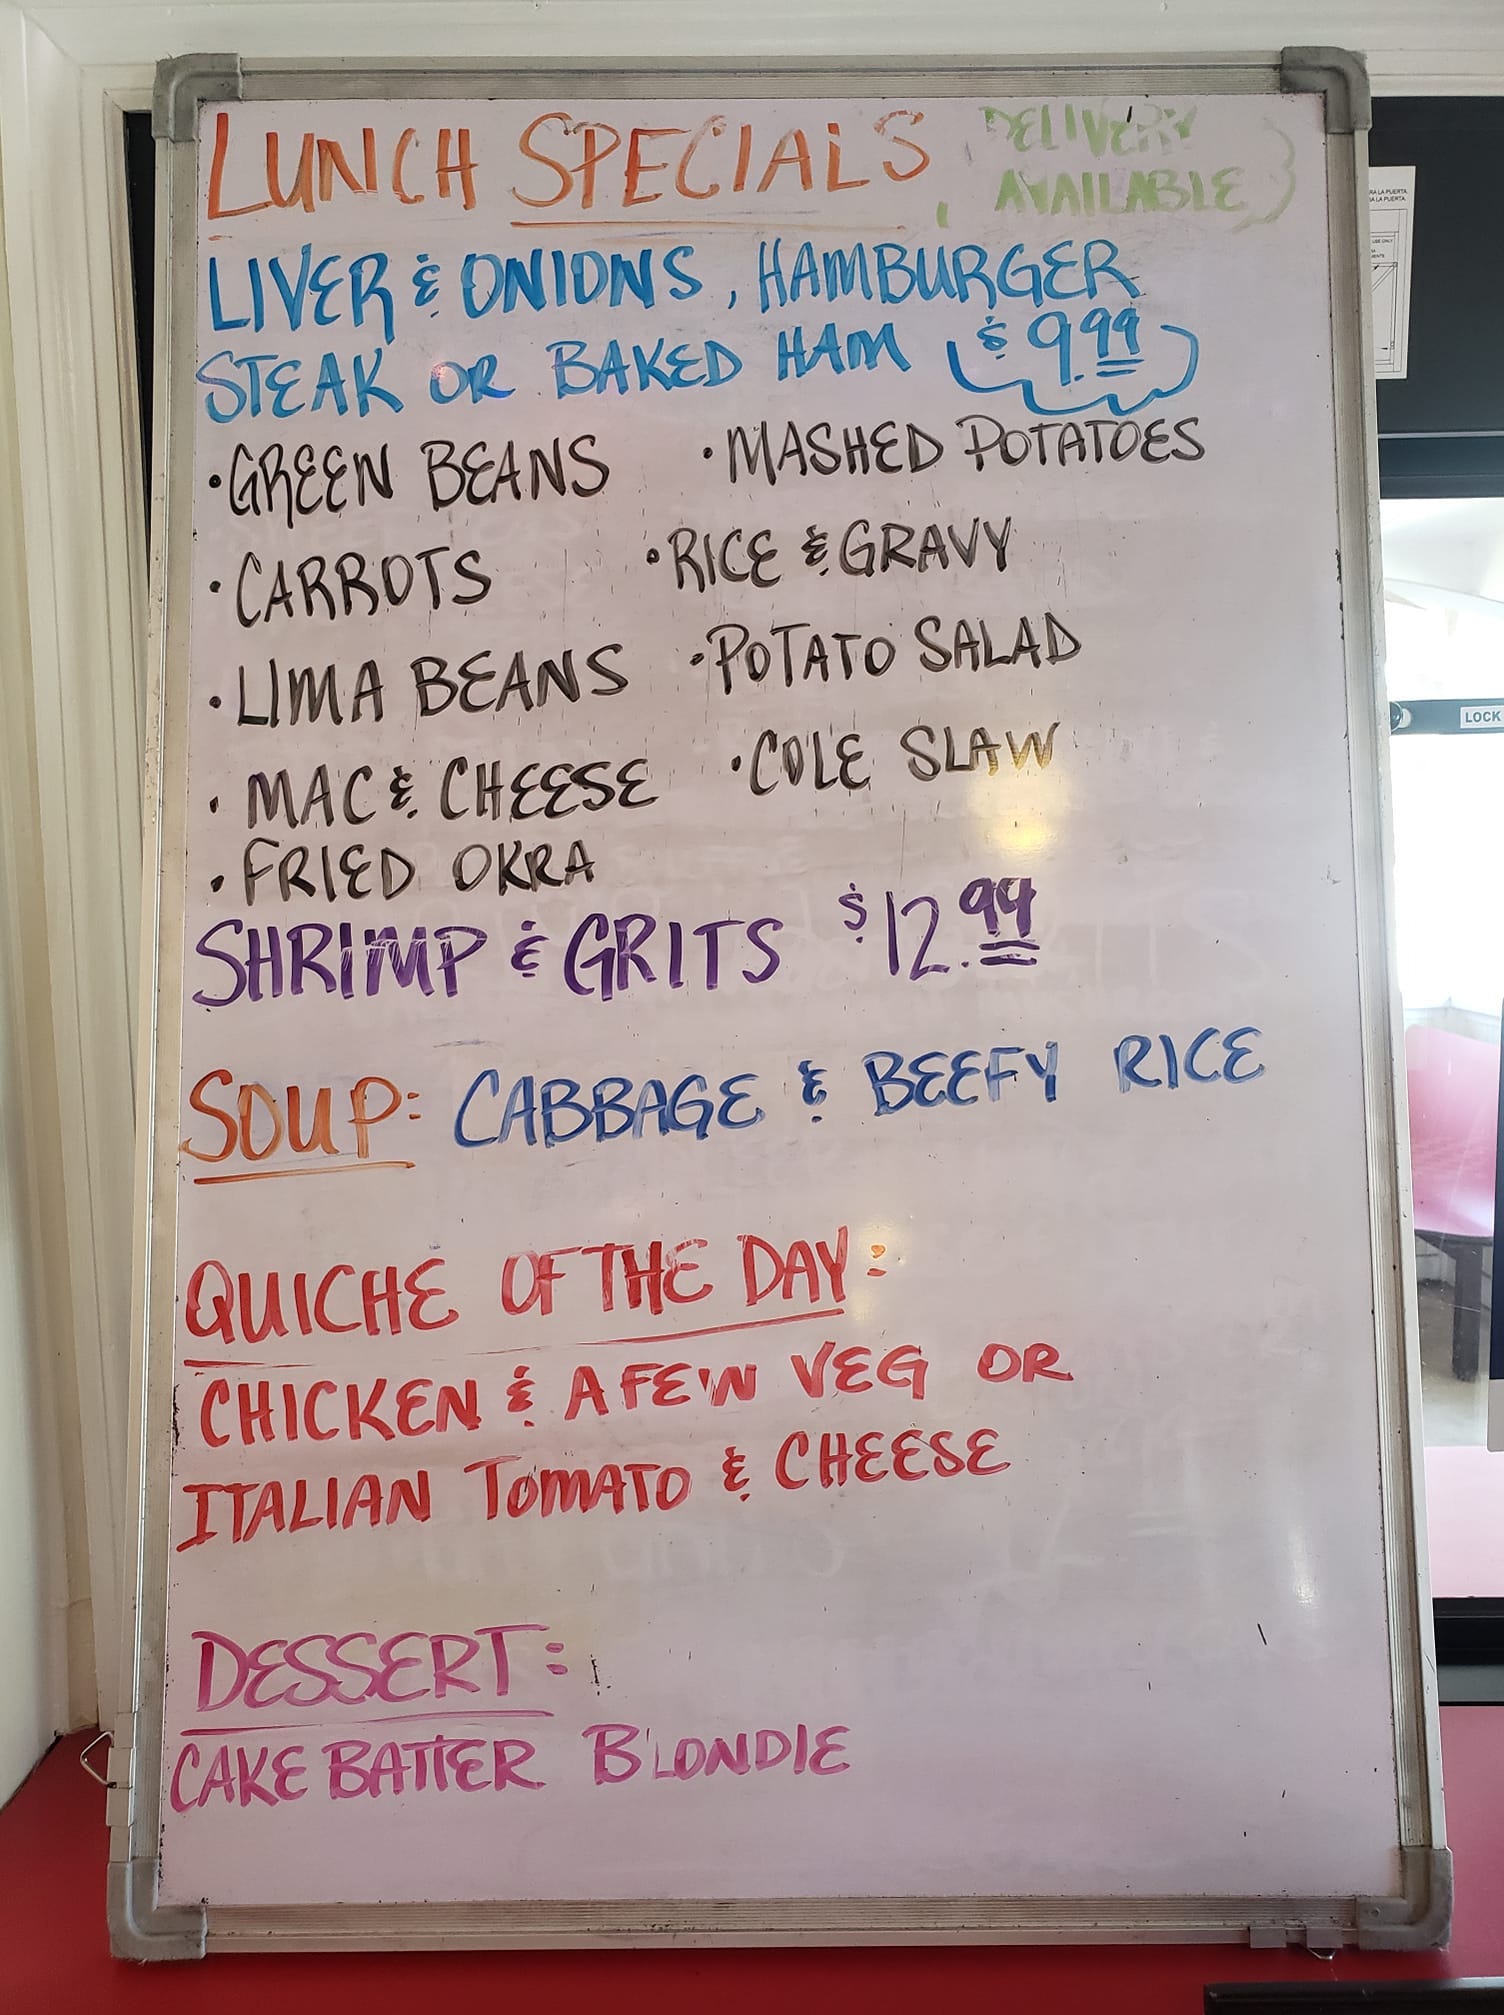 LUNCH SPECIALS, DELIVERY
AVAILABLE
LIVER & ONIONS, HAMBURGER
STEAK OR BAKED HAM $9.99
•GREEN BEANS •MASHED POTATOES
•CARROTS •RICE & GRAVY
•LIMA BEANS •POTATO SALAD
•MAC & CHEESE •COLE SLAW
•FRIED OKRA
SHRIMP & GRITS $12.99
SOUP: CABBAGE & BEEFY RICE
QUICHE OF THE DAY:
CHICKEN & A FEW VEG OR
ITALIAN TOMATO & CHEESE
DESSERT:
CAKE BATTER BLONDIE
LOCK